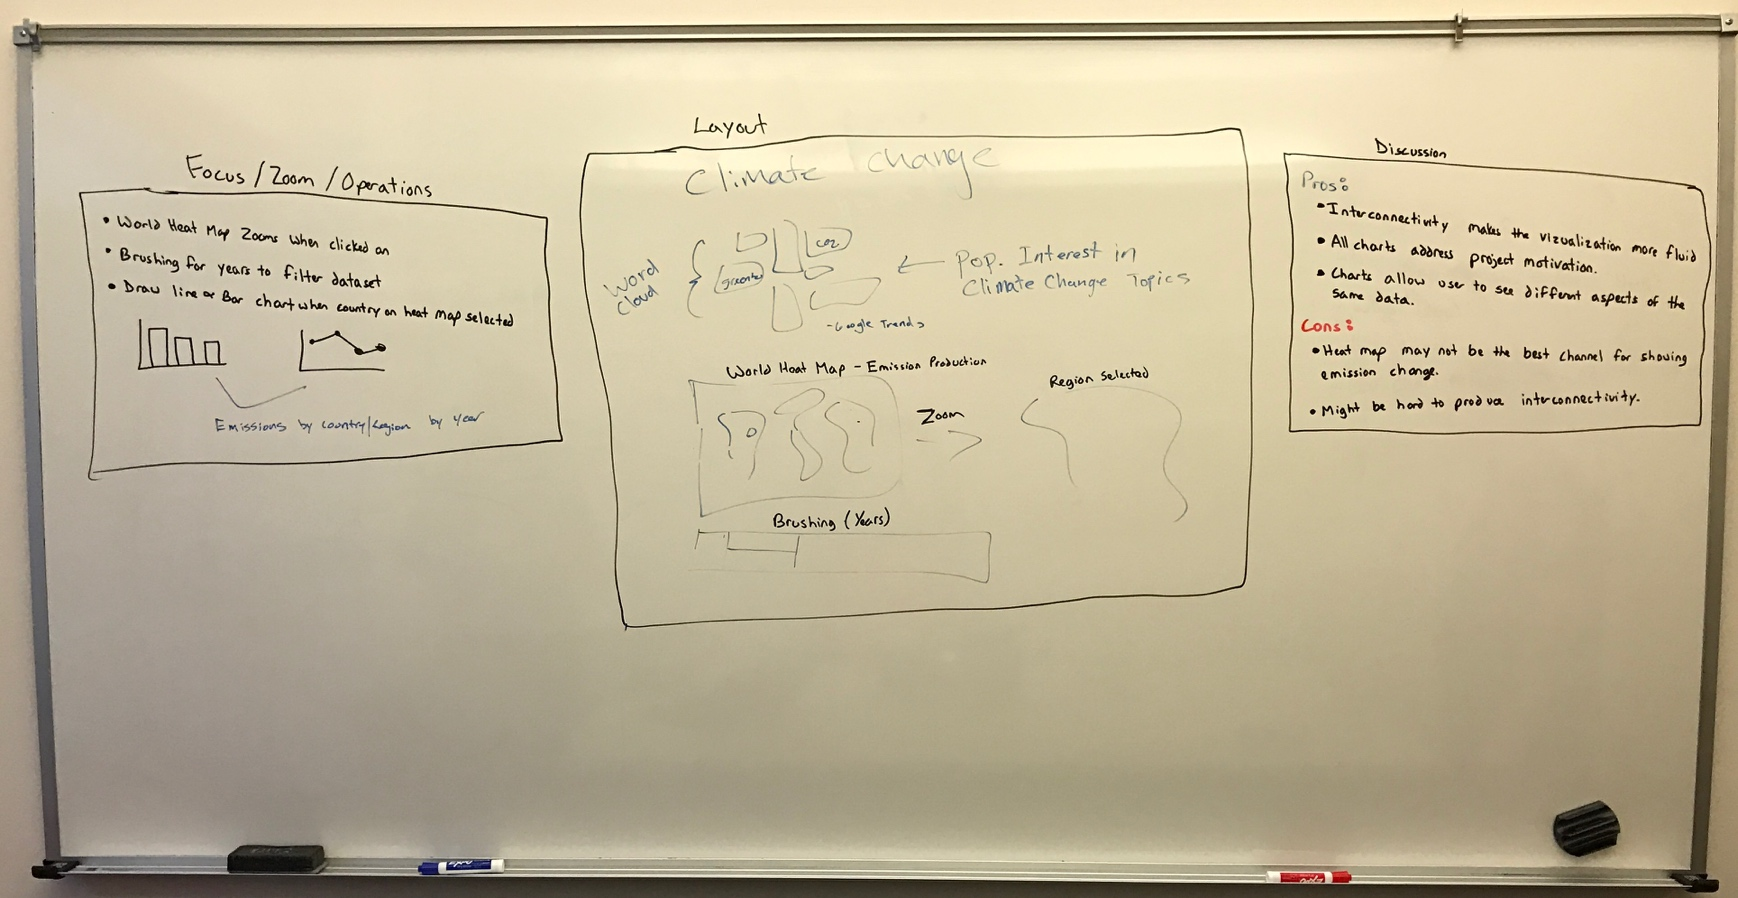 Focus/Zoom/Operations
• World Heat Map Zooms when clicked on
• Brushing for years to filter dataset
• Draw line or Bar chart when country on heat map selected
Emissions by country/Region by year
Layout
Climate change
Word
Cloud
CO2
Pop. Interest in
Climate Change Topics
-Google Trends
World Heat Map - Emission Production
Zoom
Region Selected
Brushing (Years)
Discussion
Pros:
• Interconnectivity makes the vizualization more fluid
• All charts address project motivation.
• Charts allow user to see different aspects of the
same data.
Cons:
• Heat map may not be the best channel for showing
emission change.
• Might be hard to produce interconnectivity.
expo